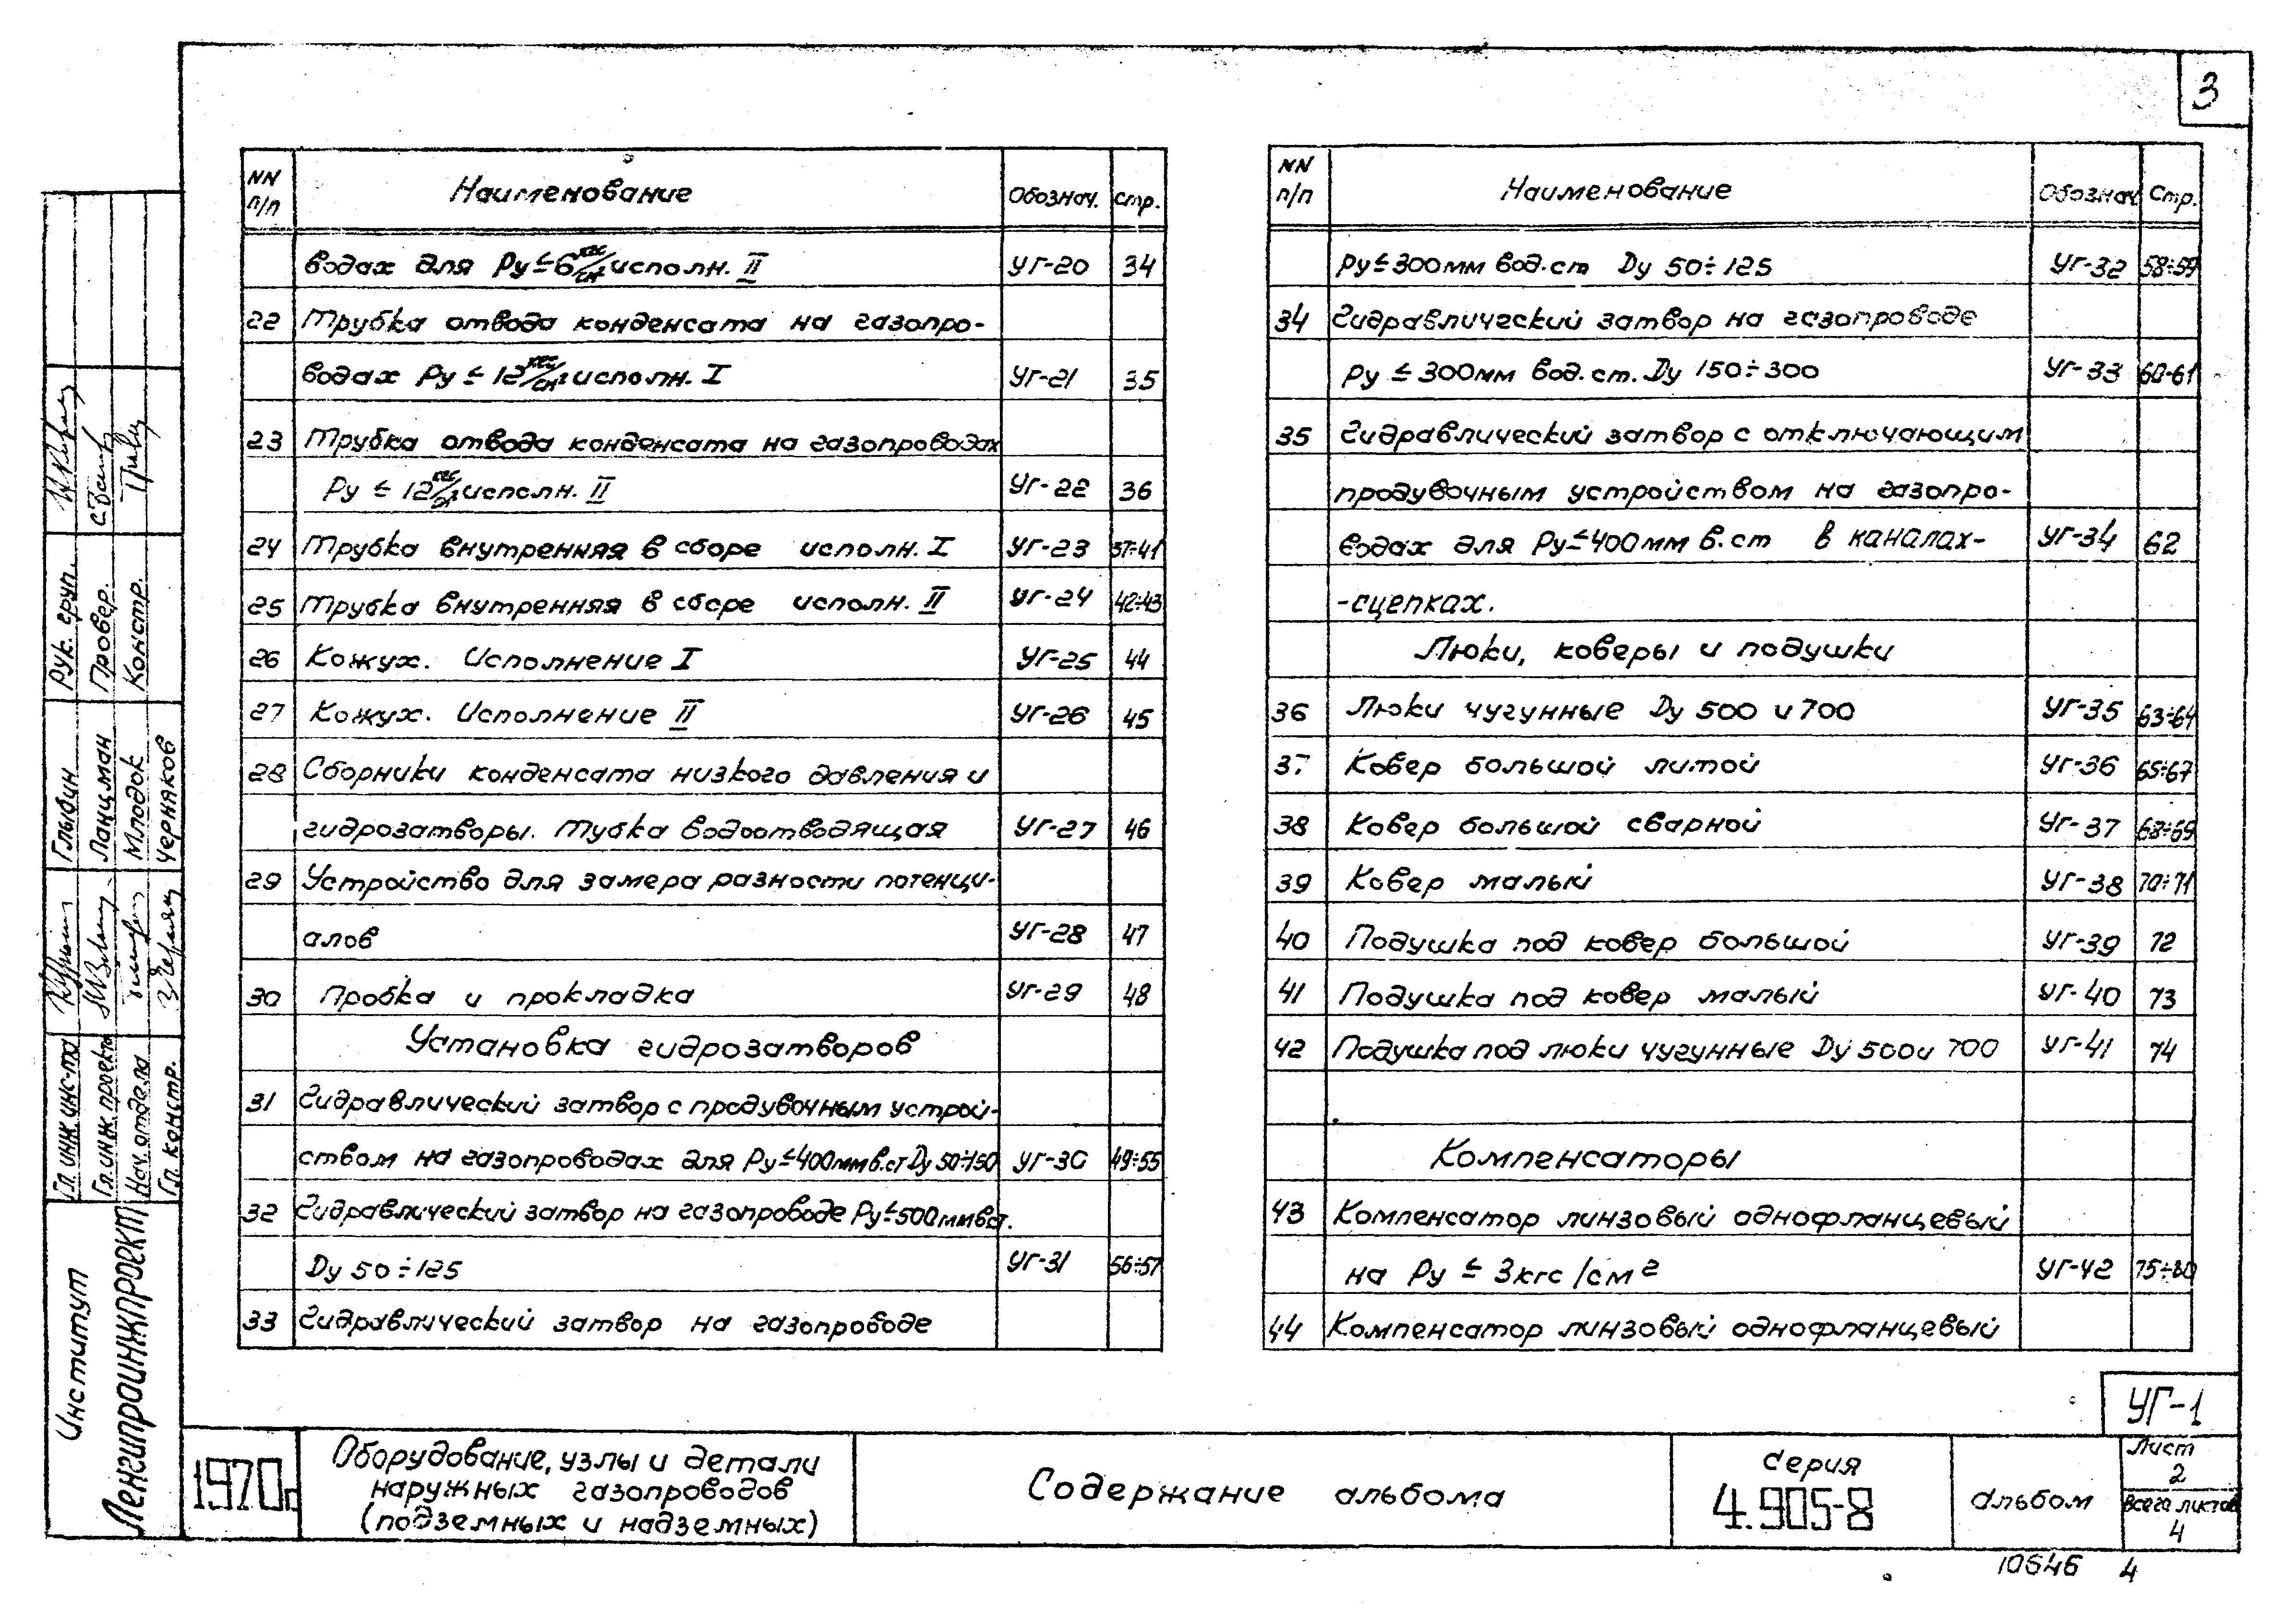 3
NN п/п Наименование Обознач. Стр.
водах для Ру≤6 кгс/см² исполн. II УГ-20 34
22 Трубка отвода конденсата на газопро-
водах Ру ≤ 12 кгс/см² исполн. I УГ-21 35
23 Трубка отвода конденсата на газопроводах
Ру ≤ 12 кгс/см² исполн. II УГ-22 36
24 Трубка внутренняя в сборе исполн. I УГ-23 37÷41
25 Трубка внутренняя в сборе исполн. II УГ-24 42÷43
26 Кожух. Исполнение I УГ-25 44
27 Кожух. Исполнение II УГ-26 45
28 Сборники конденсата низкого давления и
гидрозатворы. Тубка водоотводящая УГ-27 46
29 Устройство для замера разности потенци-
алов УГ-28 47
30 Пробка и прокладка УГ-29 48
Установка гидрозатворов
31 Гидравлический затвор с продувочным устрой-
ством на газопроводах для Ру≤400мм в.ст Ду 50÷150 УГ-30 49÷55
32 Гидравлический затвор на газопроводе Ру≤500мм в.ст.
Ду 50÷125 УГ-31 56÷57
33 Гидравлический затвор на газопроводе
NN п/п Наименование Обознач Стр.
Ру≤300мм вод.ст Ду 50÷125 УГ-32 58÷59
34 Гидравлический затвор на газопроводе
Ру ≤ 300мм вод.ст. Ду 150÷300 УГ-33 60-61
35 Гидравлический затвор с отключающим
продувочным устройством на газопро-
водах для Ру≤400мм в.ст в каналах- УГ-34 62
-сцепках.
Люки, коверы и подушки
36 Люки чугунные Ду 500 и 700 УГ-35 63÷64
37 Ковер большой литой УГ-36 65÷67
38 Ковер большой сварной УГ-37 68÷69
39 Ковер малый УГ-38 70÷71
40 Подушка под ковер большой УГ-39 72
41 Подушка под ковер малый УГ-40 73
42 Подушка под люки чугунные Ду 500 и 700 УГ-41 74
Компенсаторы
43 Компенсатор линзовый однофланцевый
на Ру ≤ 3кгс/см² УГ-42 75÷80
44 Компенсатор линзовый однофланцевый
Рук. груп.
Провер.
Констр.
Гл. инж. инс-та Глыбин
Гл. инж. проекта Ланцман
Нач. отдела Млодок
Гл. констр. Черняков
Институт
Ленгипроинжпроект
УГ-1
1970г
Оборудование, узлы и детали
наружных газопроводов
(подземных и надземных)
Содержание альбома
Серия
4.905-8
Альбом
Лист
2
Всего листов
4
10646 4